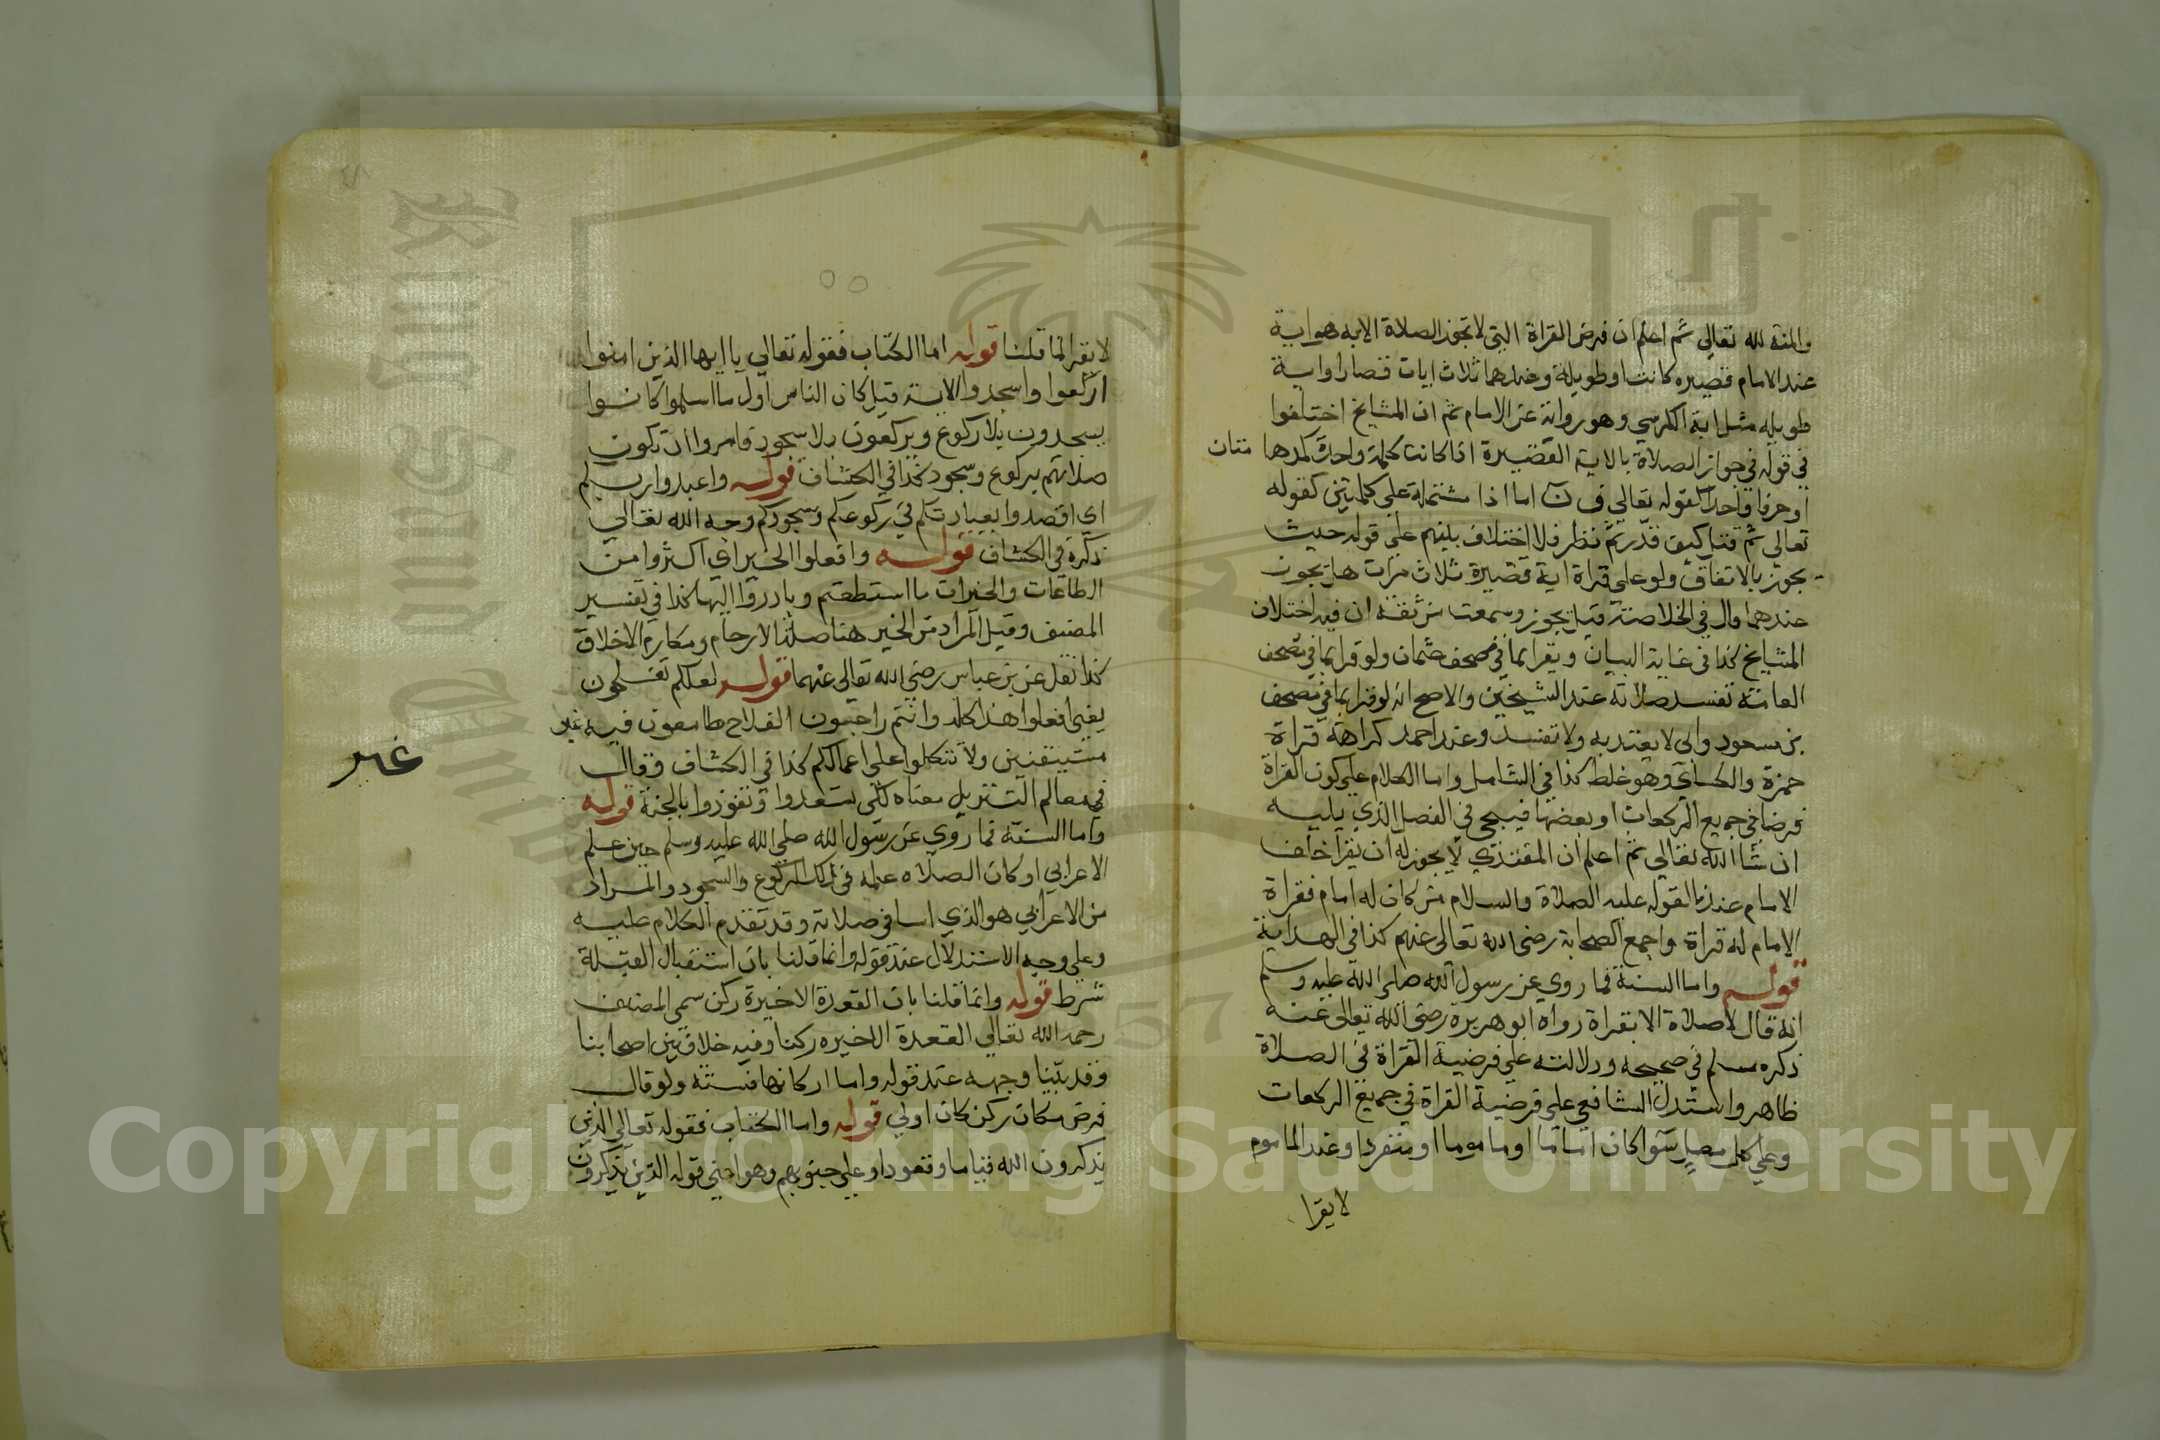 والمنة لله تعالي ثم اعلم ان فرض القراة التي لا تجوز الصلاة الا به هو اية
عند الامام قصيره كانت او طويلة وعندهما ثلاث ايات قصار او اية
طويله مثل اية الكرسي وهو رواية عن الامام ثم ان المشايخ اختلفوا
في قوله في جواز الصلاة بالاية القصيرة اذا كانت كلمة واحدة كمدها متان
او حرفا واحدا كقوله تعالي ق ن اما اذا مشتملة علي كلمتين كقوله
تعالي ثم قتل كيف قدر ثم نظر فلا اختلاف بينهم علي قوله حيث
يجوز بالاتفاق ولو علي قراة اية قصيرة ثلاث مرات هل يجوز
عندهما قال في الخلاصة قيل يجوز وسمعت من ثقة ان فيه اختلاف
المشايخ كذا في غاية البيان ويقرا بما في مصحف عثمان ولو قرا بما في مصحف
العامة تفسد صلاته عند الشيخين والاصح انه لو قرا بما في مصحف
بن مسعود وابي لا يعتد به ولا تفسد وعند احمد كراهة قراة
حمزة والكساي وهو غلط كذا في الشامل واما الكلام علي كون القراة
فرضا في جميع الركعات او بعضها فيجي في الفصل الذي يليه
ان شا الله تعالي ثم اعلم ان المقتدي لا يجوز له ان يقرا خلف
الامام عندنا لقوله عليه الصلاة والسلام من كان له امام فقراة
الامام له قراة واجمع الصحابة رضي الله تعالي عنهم كذا في الهداية
قوله واما السنة فما روي عن رسول الله صلي الله عليه وسلم
انه قال لا صلاة الا بقراة رواه ابو هريرة رضي الله تعالي عنه
ذكره مسلم في صحيحه ودلالته علي فرضية القراة في الصلاة
ظاهر واستدل الشافعي علي فرضية القراة في جميع الركعات
وعلي كل مصل سوا كان اماما او ماموما او منفردا وعندنا الماموم
لا يقرا
لا يقرا لما قلنا قوله اما الكتاب فقوله تعالي يا ايها الذين امنوا
اركعوا واسجدوا الاية قيل كان الناس اول ما اسلموا كانوا
يسجدون بلا ركوع ويركعون بلا سجود فامروا ان تكون
صلاتهم بركوع وسجود كذا في الكشاف قوله واعبدوا ربكم
اي اقصدوا بعبادتكم في ركوعكم وسجودكم وجه الله تعالي
ذكره في الكشاف قوله وافعلوا الخير اي اكثروا من
الطاعات والخيرات ما استطعتم وبادروا اليها كذا في تفسير
المصنف وقيل المراد من الخير هنا صلة الارحام ومكارم الاخلاق
كذا نقل عن بن عباس رضي الله تعالي عنهما قوله لعلكم تفلحون
يعني افعلوا هذا كله وانتم راجيون الفلاح طامعون فيه غير
غير
مستيقنين ولا تتكلوا علي اعمالكم كذا في الكشاف وقال
في معالم التنزيل معناه لكي تسعدوا وتفوزوا بالجنة قوله
واما السنة فما روي عن رسول الله صلي الله عليه وسلم حين علم
الاعرابي اركان الصلاه علمه في ذلك الركوع والسجود والمراد
من الاعرابي هو الذي اسا في صلاته وقد تقدم الكلام عليه
وعلي وجه الاستدلال عند قوله وانما قلنا بان استقبال القبلة
شرط قوله وانما قلنا بان القعدة الاخيرة ركن سمي المصنف
رحمه الله تعالي القعدة الاخيره ركنا وفيه خلاف بين اصحابنا
وقد بينا وجهه عند قوله واما اركانها فستة ولو قال
فرض مكان ركن كان اولي قوله واما الكتاب فقوله تعالي الذين
يذكرون الله قياما وقعودا وعلي جنوبهم وهو اعني قوله الذين يذكرون
Copyright © King Saud University
King Saud University
1957